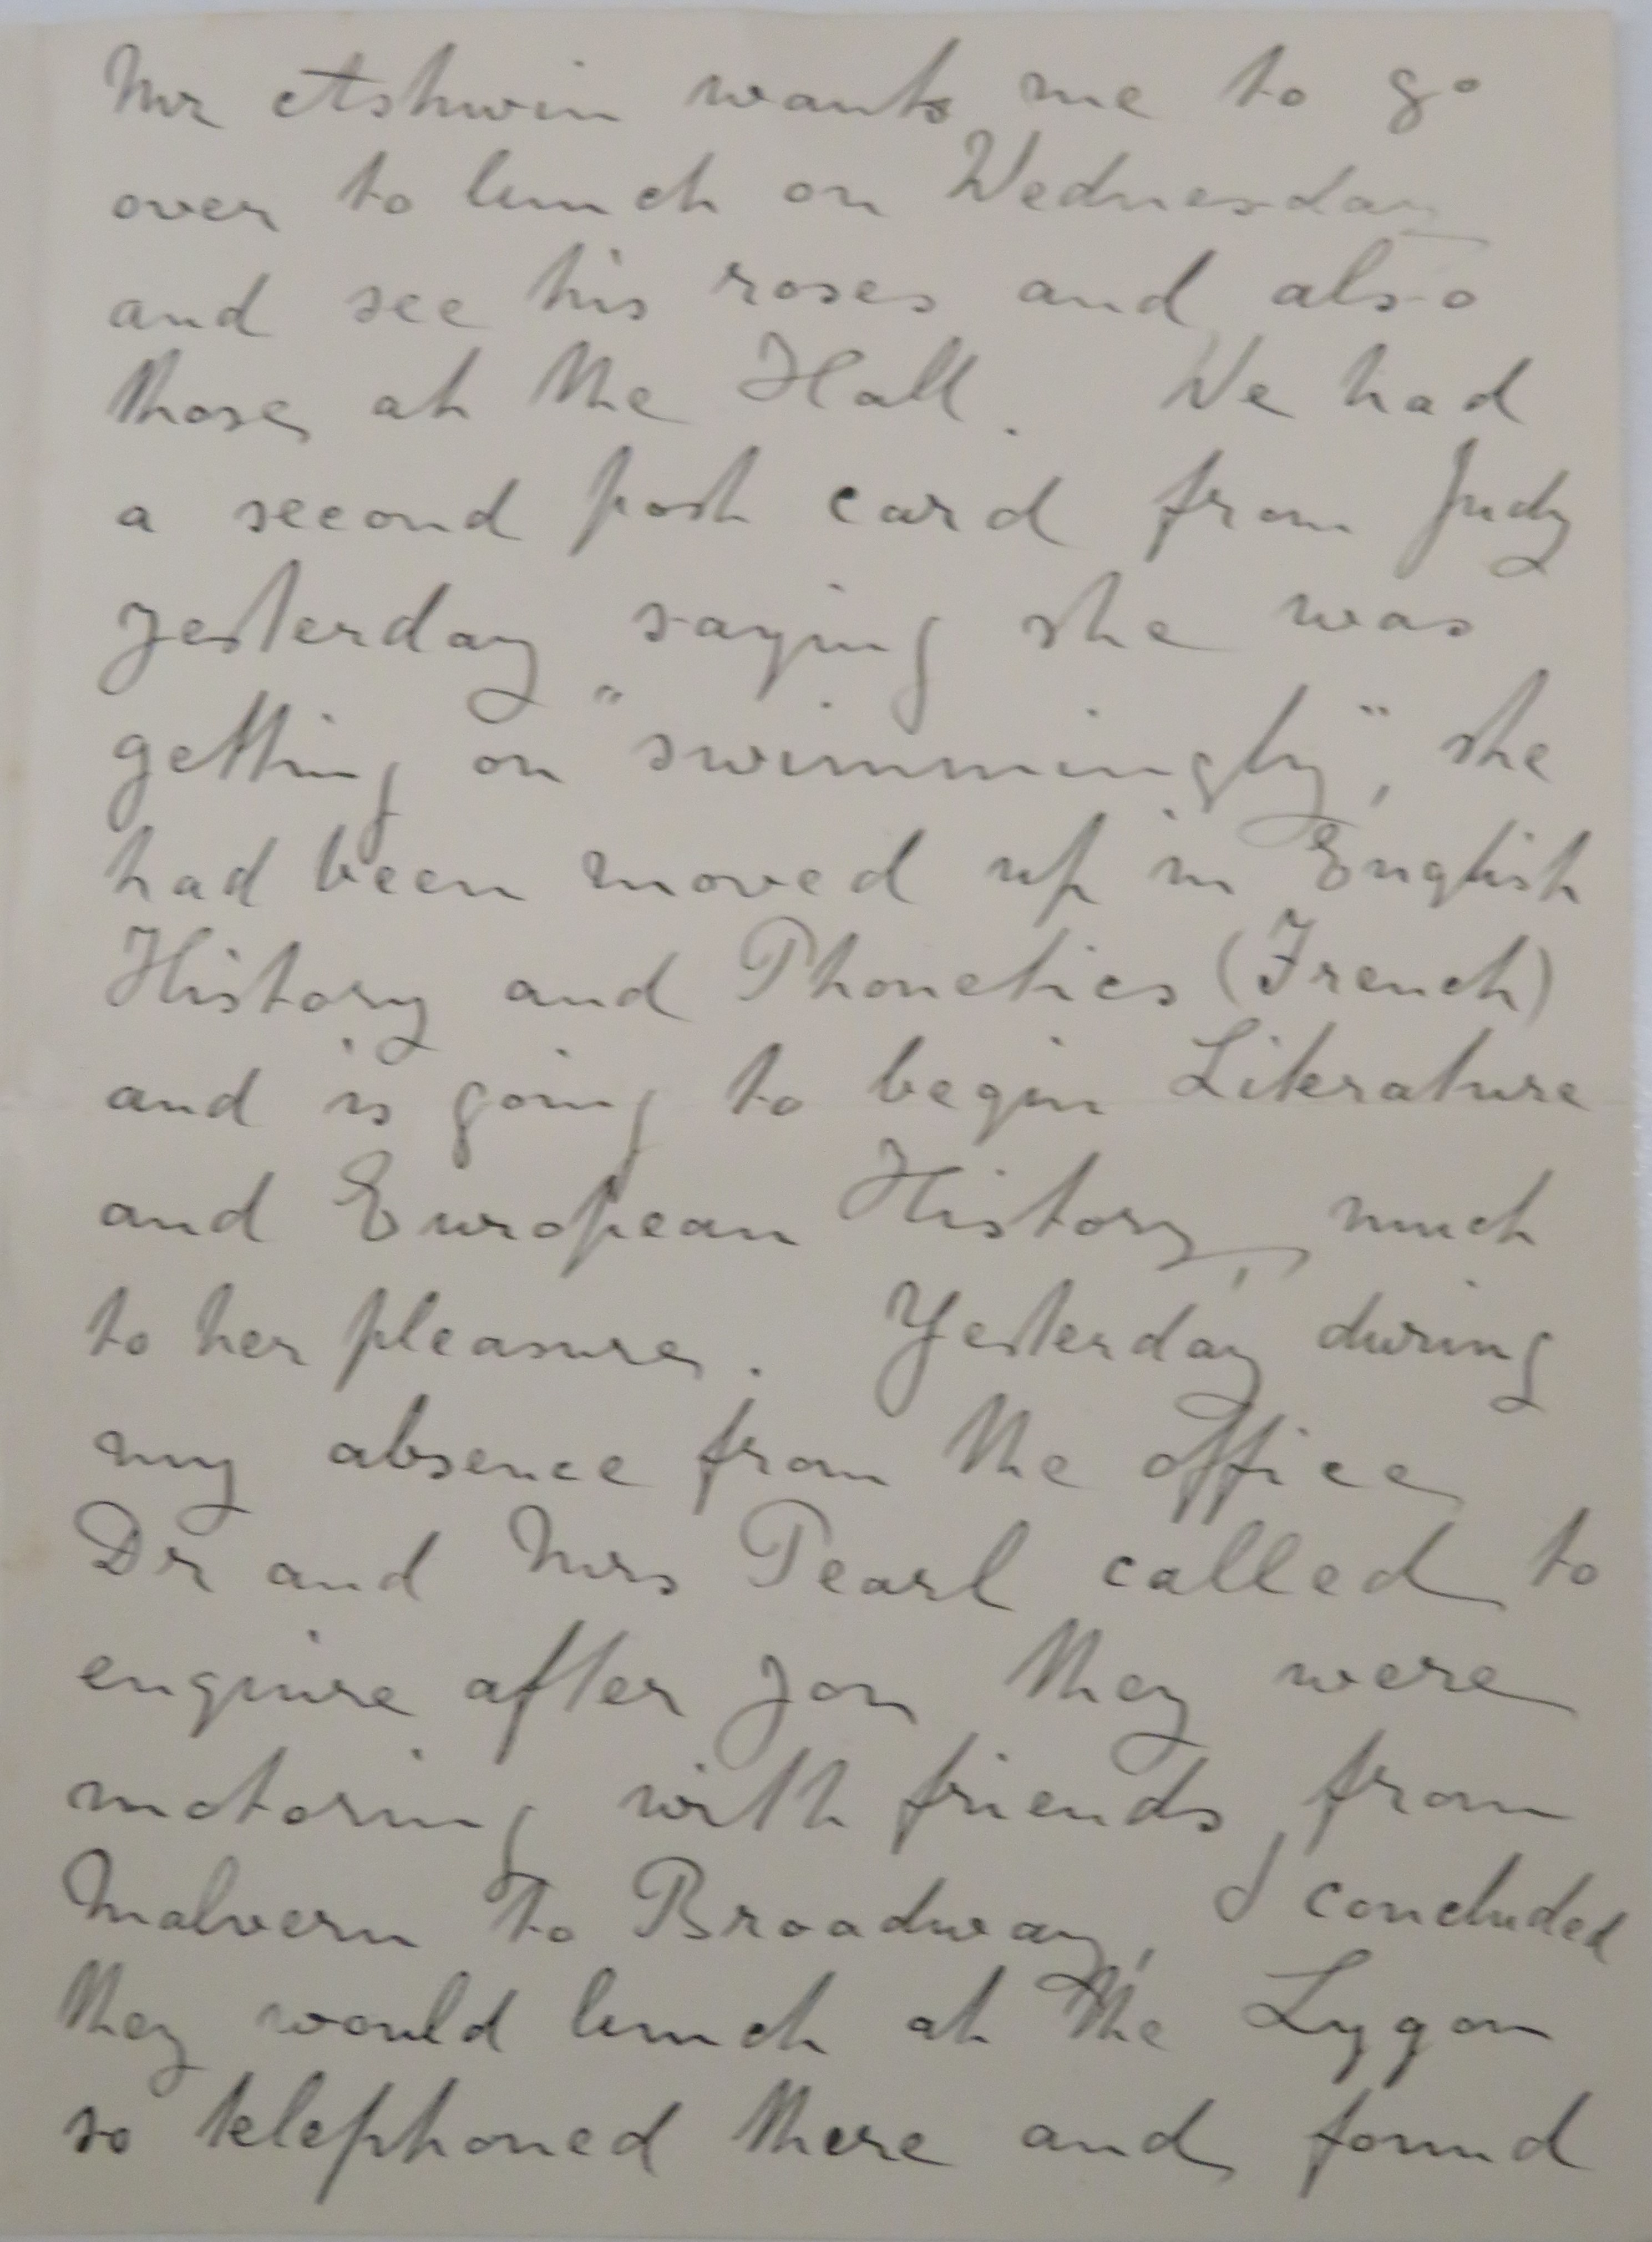 Mr Ashwin wants me to go
over to lunch on Wednesday
and see his roses and also
those at the Hall. We had
a second post card from Judy
yesterday saying she was
getting on "swimmingly", she
had been moved up in English
History and Phonetics (French)
and is going to begin Literature
and European History, much
to her pleasure. Yesterday during
my absence from the office
Dr and Mrs Pearl called to
enquire after you they were
motoring with friends from
Malvern to Broadway, I concluded
they would lunch at the Lygon
so telephoned there and found